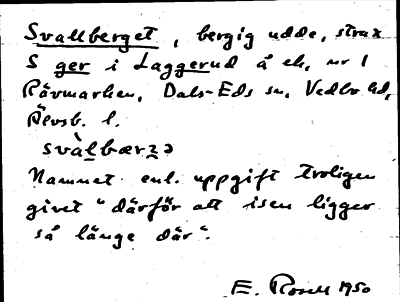 Svallberget, bergig udde, strax
S ger i Laggerud å ek. nr 1
Rävmarken, Dals-Eds sn, Vedbo hd,
Älvsb. l.
svàlbærʒə
Namnet enl. uppgift troligen
givet "därför att isen ligger
så länge där".
E. Rosell 1950